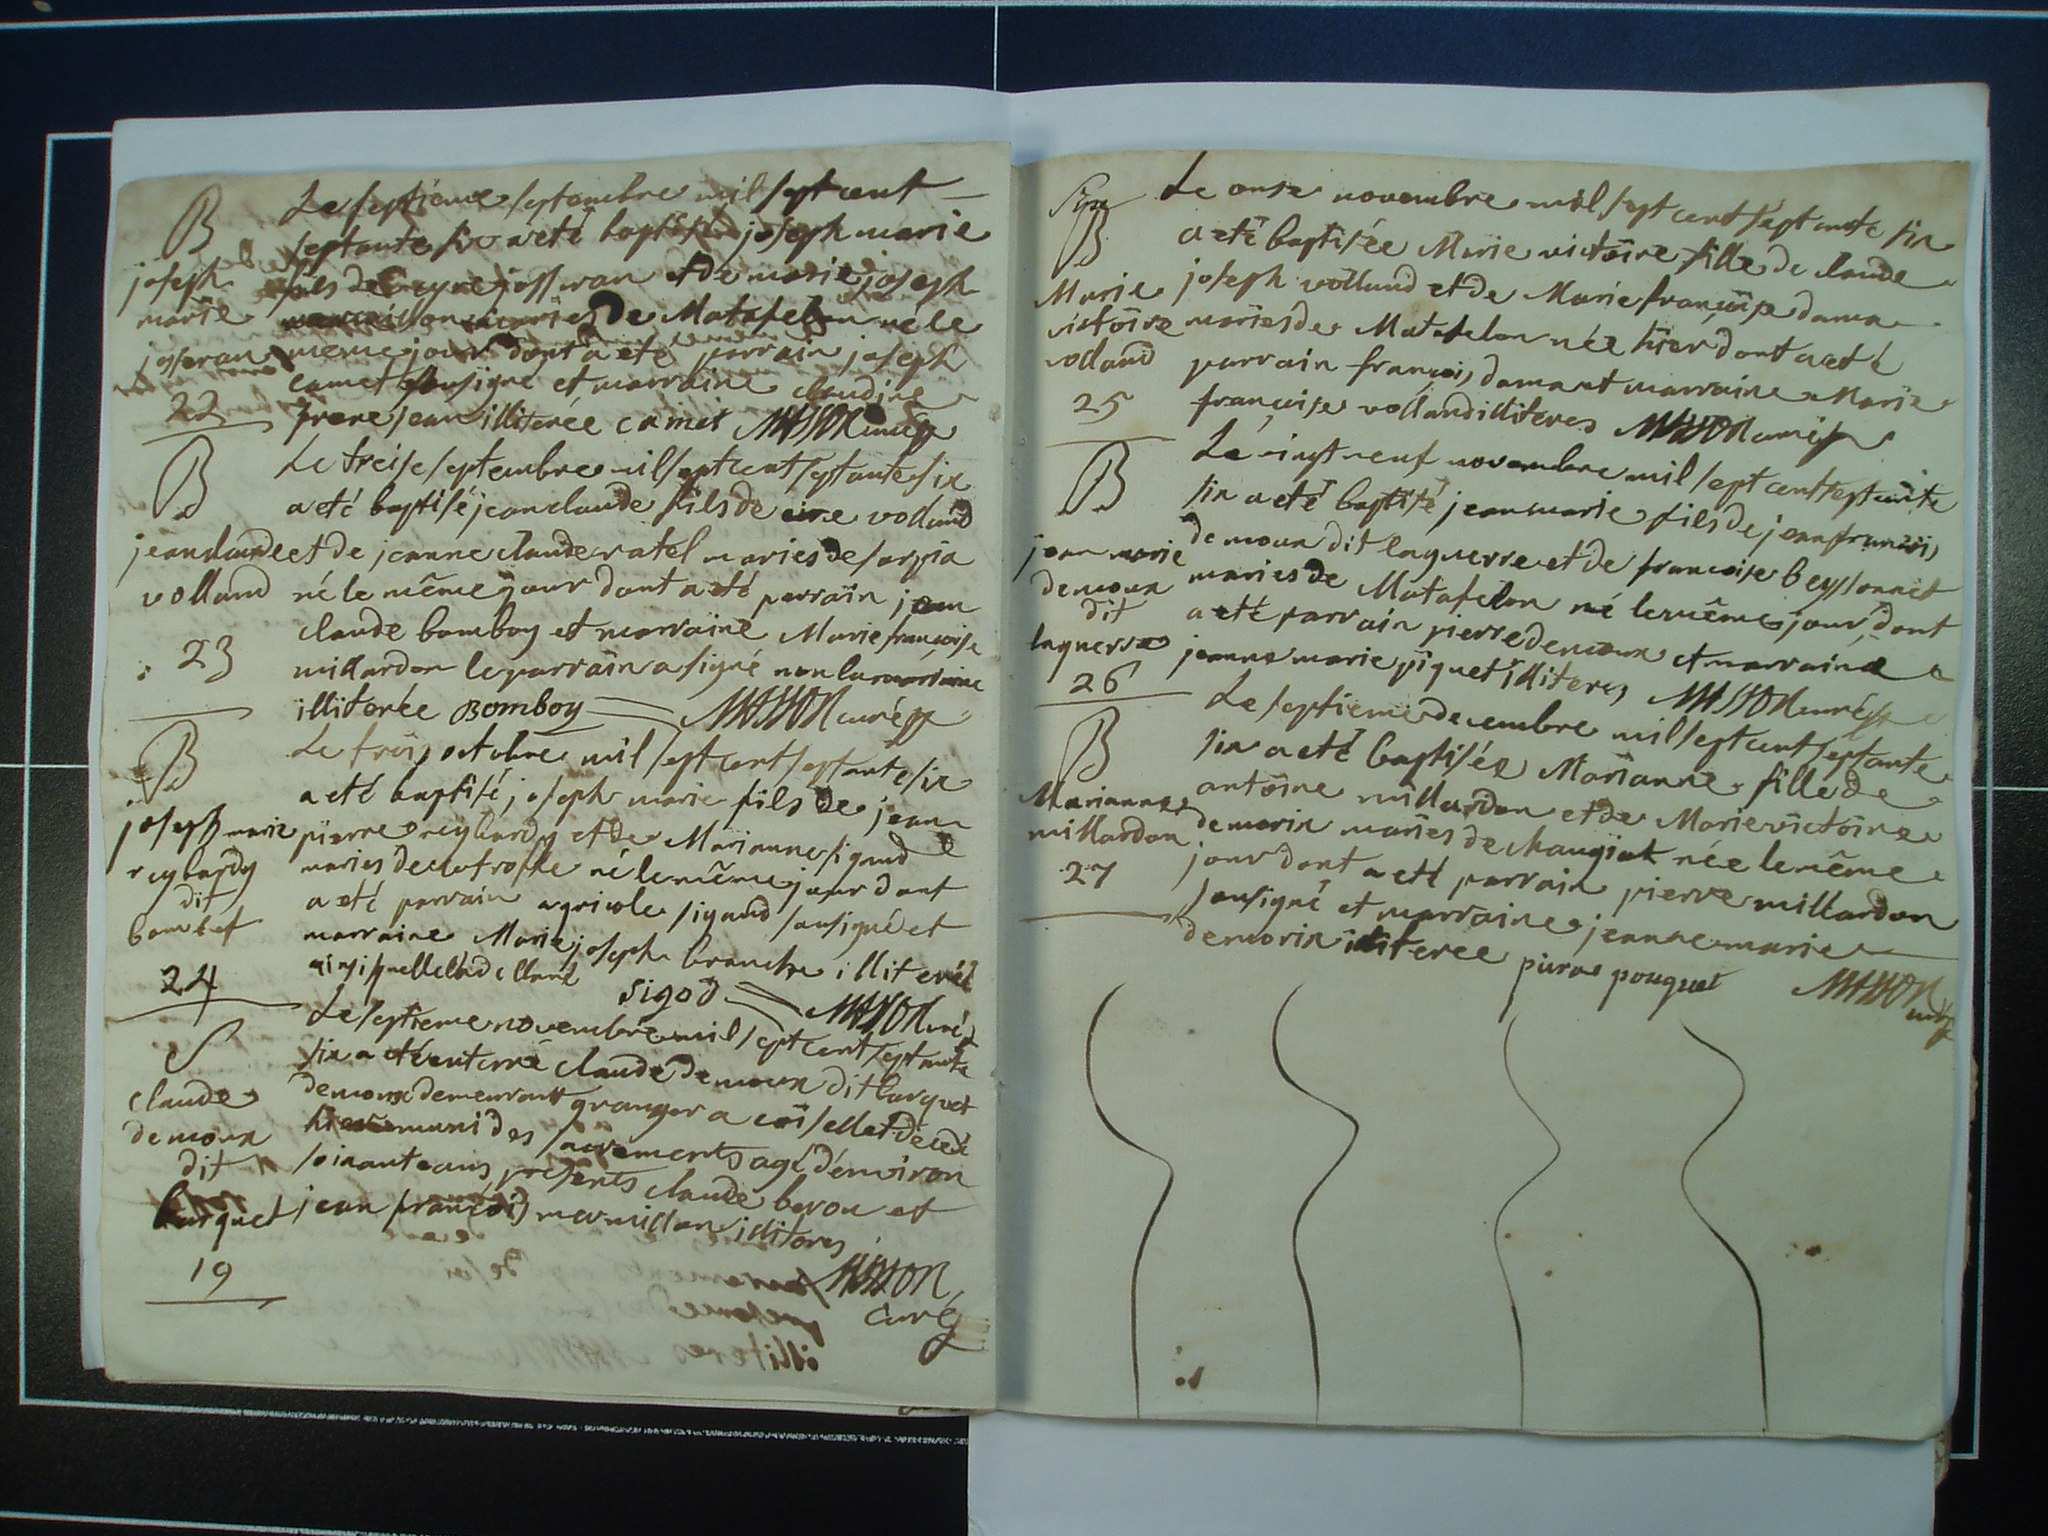 B
joseph
marie
josseran
22
Le septieme septembre mil sept cent
septante six a eté baptisé joseph marie
fils de josseran et de marie joseph
mariés de Matafelon né le
même jour dont a eté parrain joseph
camet sousigné et marraine claudine
illiterée camet MASSON curé
B
jean claude
volland
23
Le treise septembre mil sept cent septante six
a eté baptisé jean claude fils de volland
et de jeanne claude ratel mariés de sarpia
né le même jour dont a eté parrain jean
claude bomboy et marraine Marie françoise
millardon le parrain a signé non la marraine
illiterée Bomboy MASSON curé
B
joseph marie
reybardy
dit
24
Le trois octobre mil sept cent septante six
a eté baptisé joseph marie fils de jean
pierre reybardy et de Marianne sigaud
mariés de né le même jour dont
a eté parrain agricole sigaud sousigné et
marraine Marie joseph branche illiterée
sigod MASSON curé
S
claude
demoux
dit
burquet
19
Le septieme novembre mil sept cent septante
six a eté enterré claude demoux dit burquet
demeurant granger a coiselet decedé
hier muni des sacrements agé d'environ
soixante ans presents claude berou et
jean françois mermillon illiteres
MASSON
curé
B
Marie
victoire
volland
25
Le onse novembre mil sept cent septante six
a eté baptisée Marie victoire fille de claude
joseph volland et de Marie françoise daman
mariés de Matafelon née hier dont a eté
parrain françois damant marraine Marie
françoise volland illiteres MASSON curé
B
jean marie
demoux
dit
laguerre
26
Le vingt neuf novembre mil sept cent septante
six a eté baptisé jean marie fils de jean françois
demoux dit laguerre et de françoise beyssonnet
mariés de Matafelon né le même jour dont
a eté parrain pierre demoux et marraine
jeanne marie piquet illiteres MASSON curé
B
Marianne
millardon
27
Le septieme decembre mil sept cent septante
six a eté baptisée Marianne fille de
antoine millardon et de Marie victoire
demorin mariés de chaugiat née le même
jour dont a eté parrain pierre millardon
sousigné et marraine jeanne marie
demorin illiteree pouguet MASSON
curé